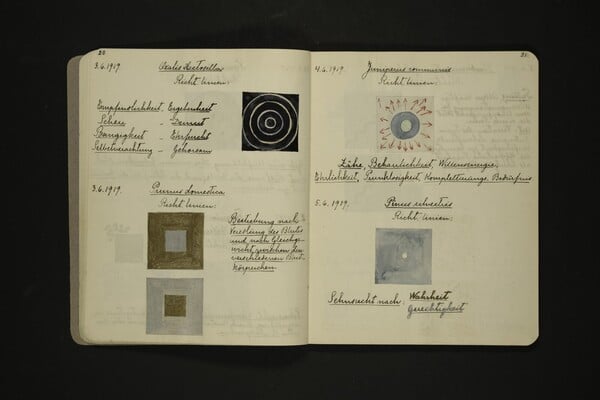 20
3.6.1919. Oxalis Acetosella
Richtlinien:
Empfindlichkeit, Ergebenheit
Scheu – Demut
Bangigkeit – Ehrfurcht
Selbstverachtung – Gehorsam
3.6.1919. Prunus domestica
Richtlinien:
Bestrebung nach
Veredlung des Blutes
und nach Gleichge-
wicht zwischen den
verschiedenen Blut-
körperchen.
21.
4.6.1919. Juniperus communis
Richtlinien:
Zähe, Beharrlichkeit, Willensenergie,
Ehrlichkeit, Prunklosigkeit, Bedürfnis
5.6.1919. Pinus silvestris
Richtlinien:
Sehnsucht nach: Wahrheit
Gerechtigkeit